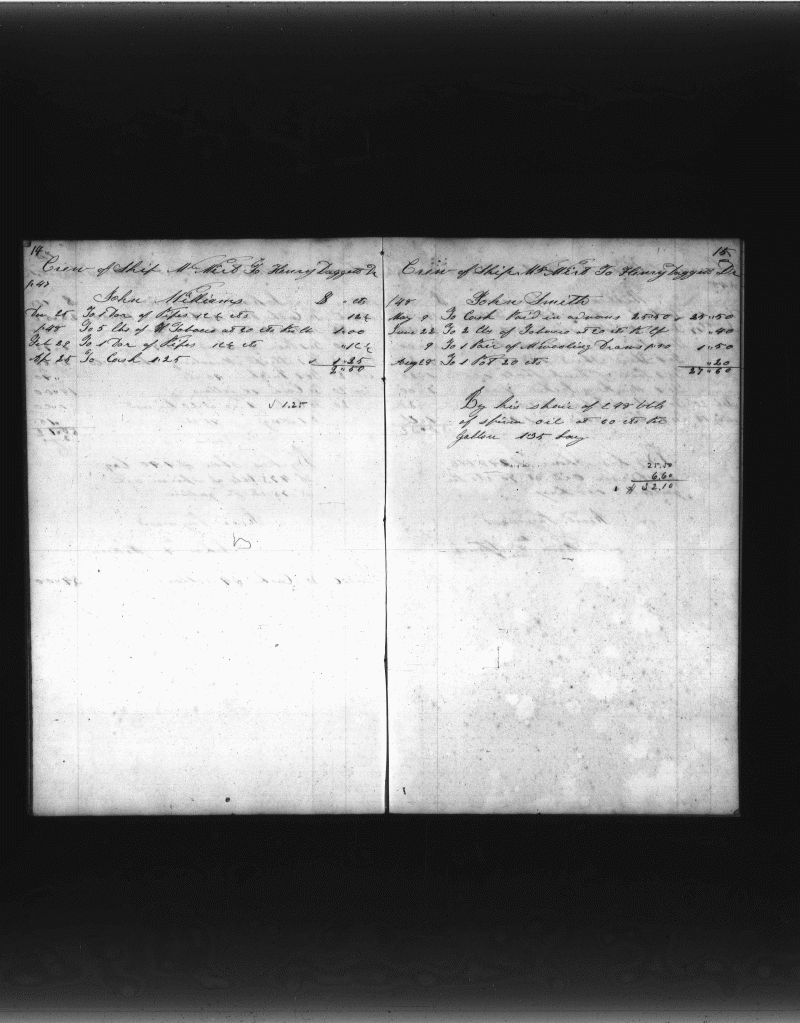 14
Crew of Ship To Henry Daggett Dr
John Williams $ cts
Dec 25 To 1 Doz of Pipes 12½ cts 12½
To 5 lbs of Tobacco at 20 cts 1.00
Feb 28 To 1 Doz of Pipes 12½ cts 12½
Ap 25 To Cash 1.25 1.25
2.50
$ 1.25
15
Crew of Ship To Henry Daggett Dr
John Smith
May 9 To Cash Paid in advans 25.50 $ 25.50
June 22 To 2 lbs of Tobacco at 20 cts .40
9 To 1 Pair of Trous 1.50
Aug 28 To 1 Pot 20 cts .20
27.60
By his share of bbls
of sperm oil at 60 cts
gallon 135 Lay
25.50
6.60
$ 32.10